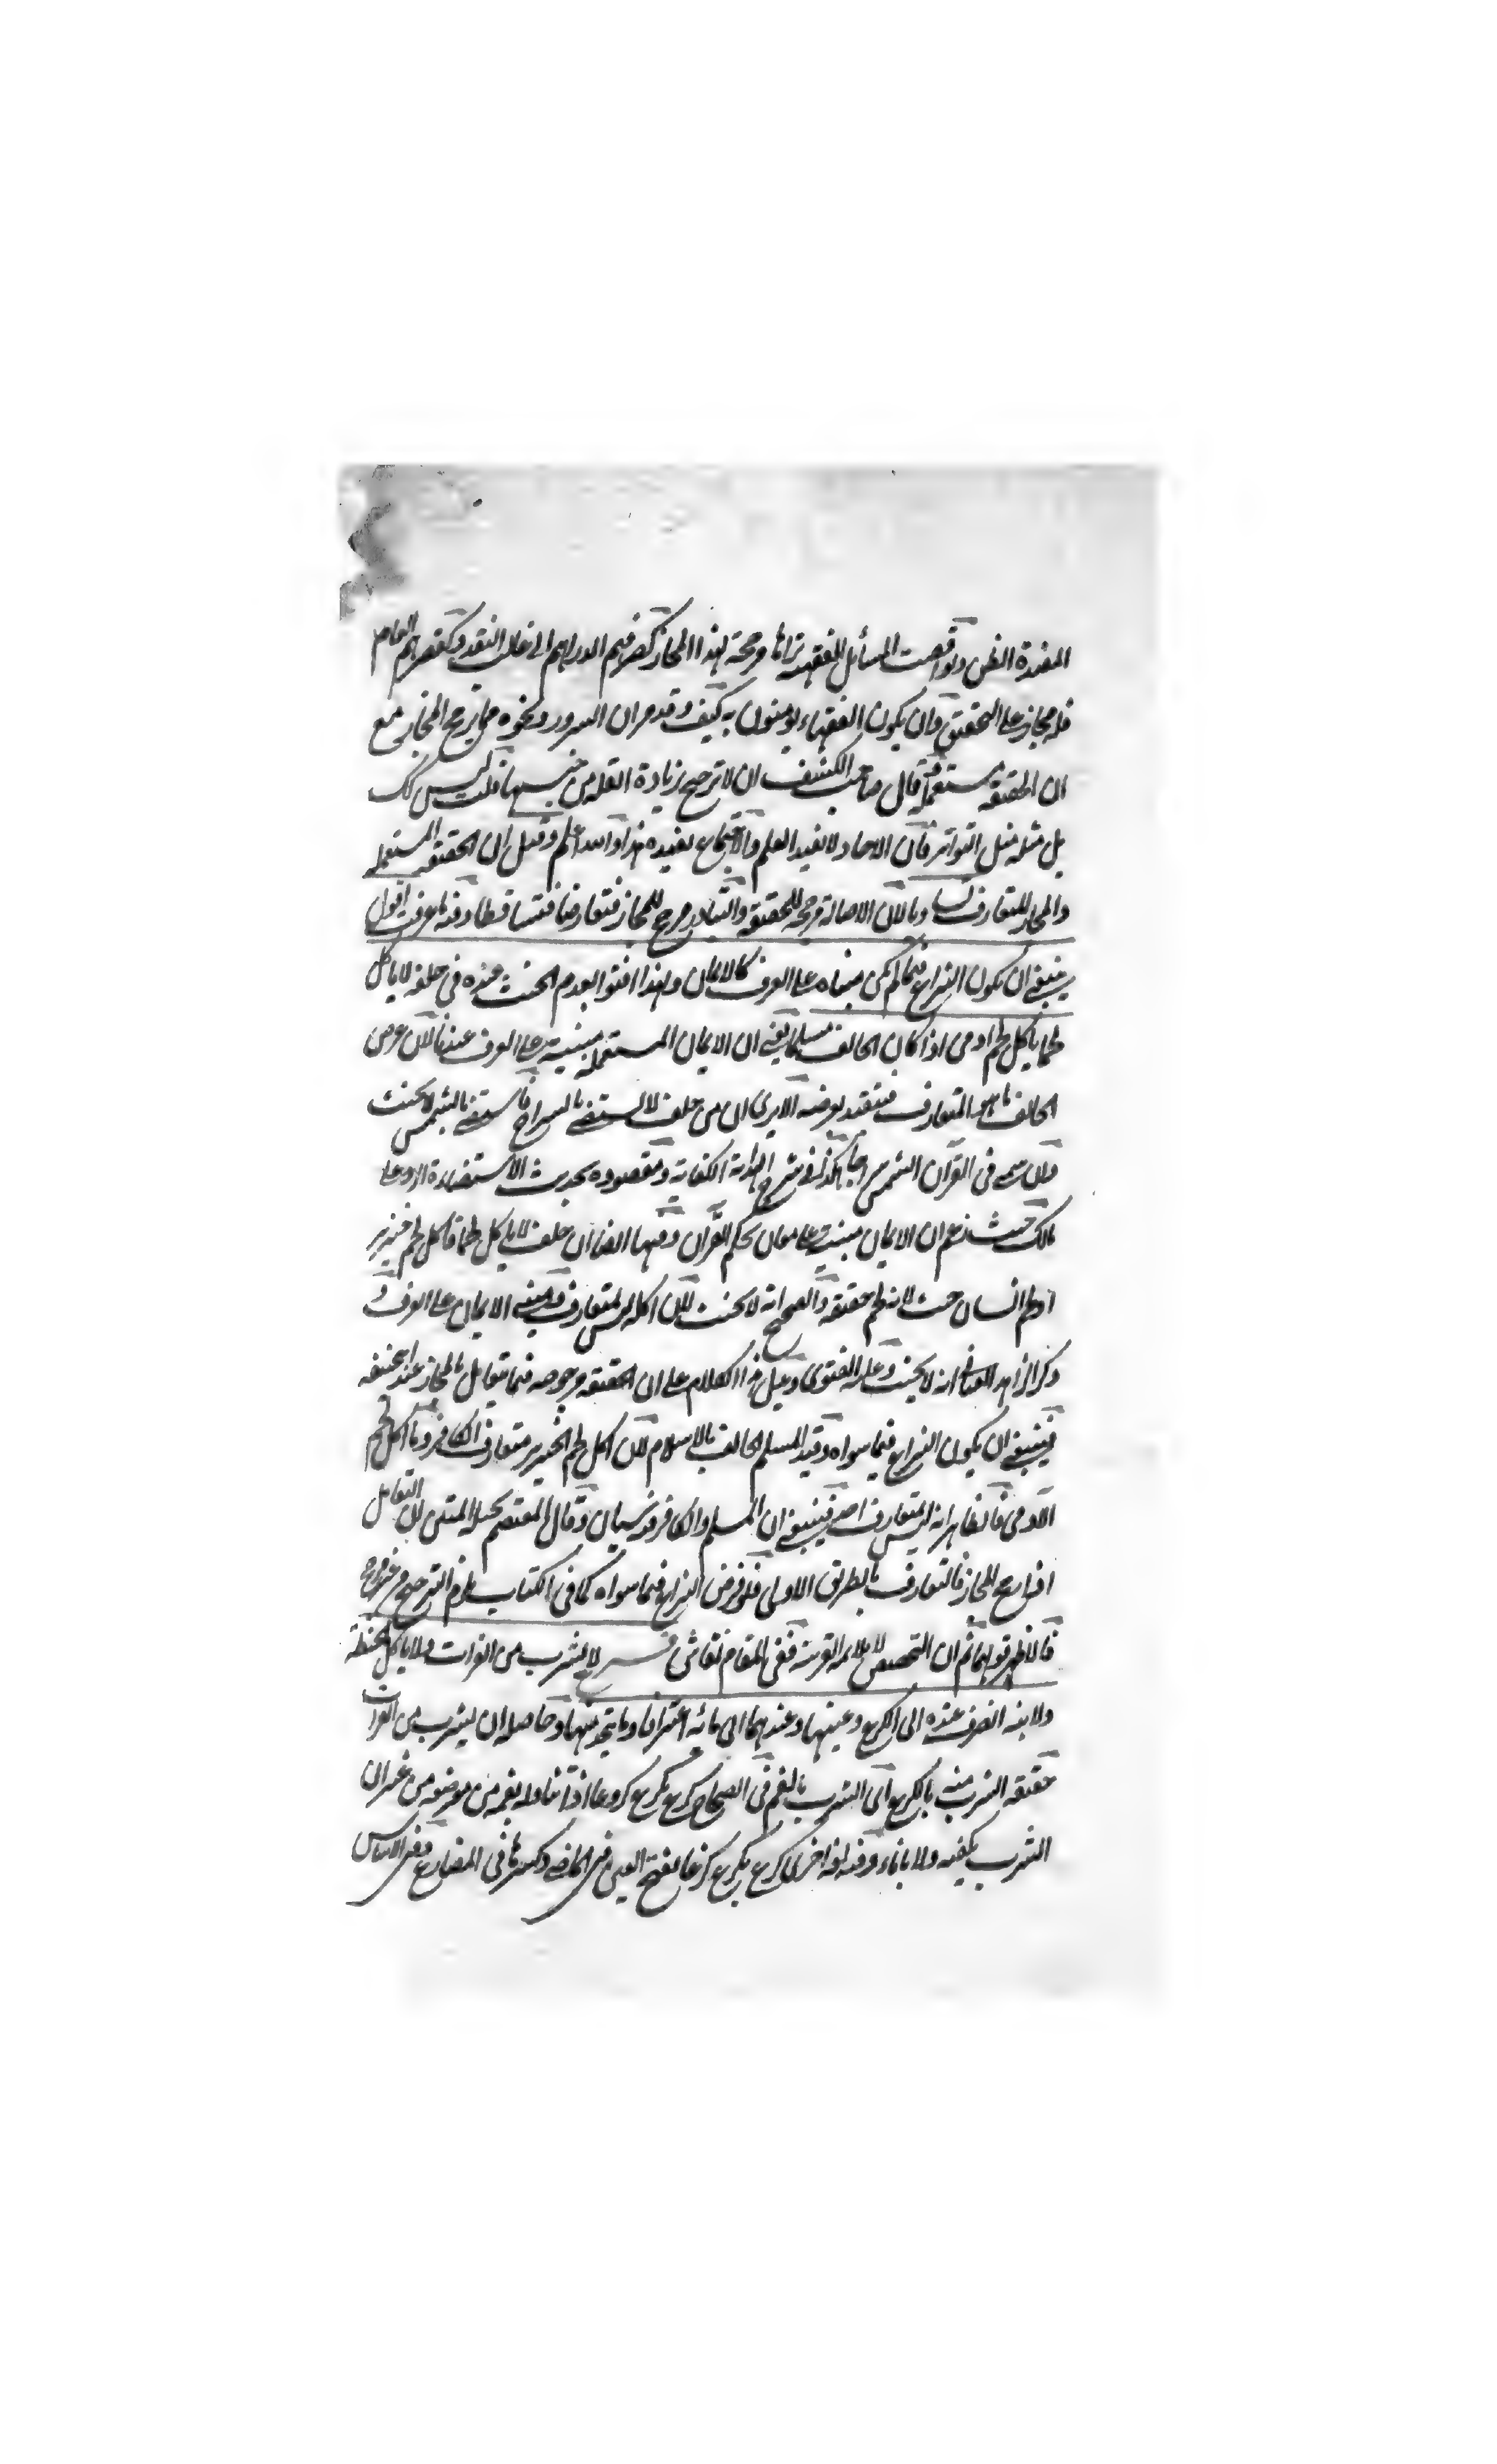 المفيدة الظن ولو اقتصت المسائل الفقهية تراها مرجحة لهذا المجاز كصرفهم الدراهم الى غالب النقد وكقصرهم العام
فله مجاز على التحقيق وان يكون الفقهاء يؤمنون به كيف وقد مر ان السرور ونحوه مما يرجح المجاز مع
ان الحقيقة مستعملة قال صاحب الكشف ان لا ترجيح بزيادة القلة من جنسها قلت ليس كك
بل مثله مثل التواتر فان الاحاد لا تفيد العلم والاجتماع يفيده هذا والله اعلم وقيل ان الحقيقة المستعملة
والمجاز المتعارف وبالان الاصالة مرجحة للحقيقة والتبادر مرجح للمجاز فتعارضا فتساقطا وفيه ما عرفت اقول
ينبغي ان يكون النزاع فيما لم يكن مبناه على العرف كالايمان ولهذا افتوا بعدم الحنث عنده في حلفه لا ياكل
لحما ياكل لحم ادمى اذا كان الحالف مسلما يعني ان الايمان المستعملة مبنية على العرف عندنا لان غرض
الحالف ما هو المتعارف فيتقيد بغرضه الا يرى ان من حلف لا يستضئ بالسراج فاستضئ بالشمس لا يحنث
وان سمى في القرآن الشمس سراجا هكذا في شرح الهداية الكفاية ومقصوده بحديث الاستضاءة الرد على
مالك حيث زعم ان الايمان مبنية على معان بحكم القرآن وفيها ايضا ان حلف لا ياكل لحما فاكل لحم خنزير
او لحم انسان حنث لانه لحم حقيقة والصحيح انه لا يحنث لان اكله ليس بمتعارف ومبنى الايمان على العرف و
ذكر الزاهد العتابى انه لا يحنث وعليه الفتوى وقيل هذا الكلام على ان الحقيقة مرجوحة فيما يتعامل بالمجاز عند ابيحنيفة
فينبغي ان يكون النزاع فيما سواه وقيد المسلم الحالف بالاسلام لان اكل لحم الخنزير متعارف الكافر واما اكل لحم
الآدمى فالظاهر انه ليس بمتعارف اصلا فينبغي ان المسلم والكافر فيه سيان وقال المعتصم بحبل الله المتين لان التعامل
اذا رجح المجاز فالتعارف بالطريق الاولى فلو فرض النزاع فيما سواه كما في الكتاب يلزم الترجيح من غير مرجح
فالاظهر قولهما ثم ان التخصيص لا يلائمه القرينة ففى المقام نقاش فرع لا يشرب من الفرات ولا ياكل الحنطة
ولا نية انصرف عنده الى الكرع وعينها وعندهما الى مائه اغترافا وما يتخذ منها وحاصله ان ليشرب من الفرات
حقيقة الشرب منه بالكرع اى الشرب بالفم في الصحاح كرع يكرع كروعا اذا تناوله بفمه من موضعه من غير ان
الشرب بكفيه ولا باناء وفيه لغة اخرى كرع يكرع كرعا بفتح العين في الماضى وكسرها في المضارع وفي الاساس